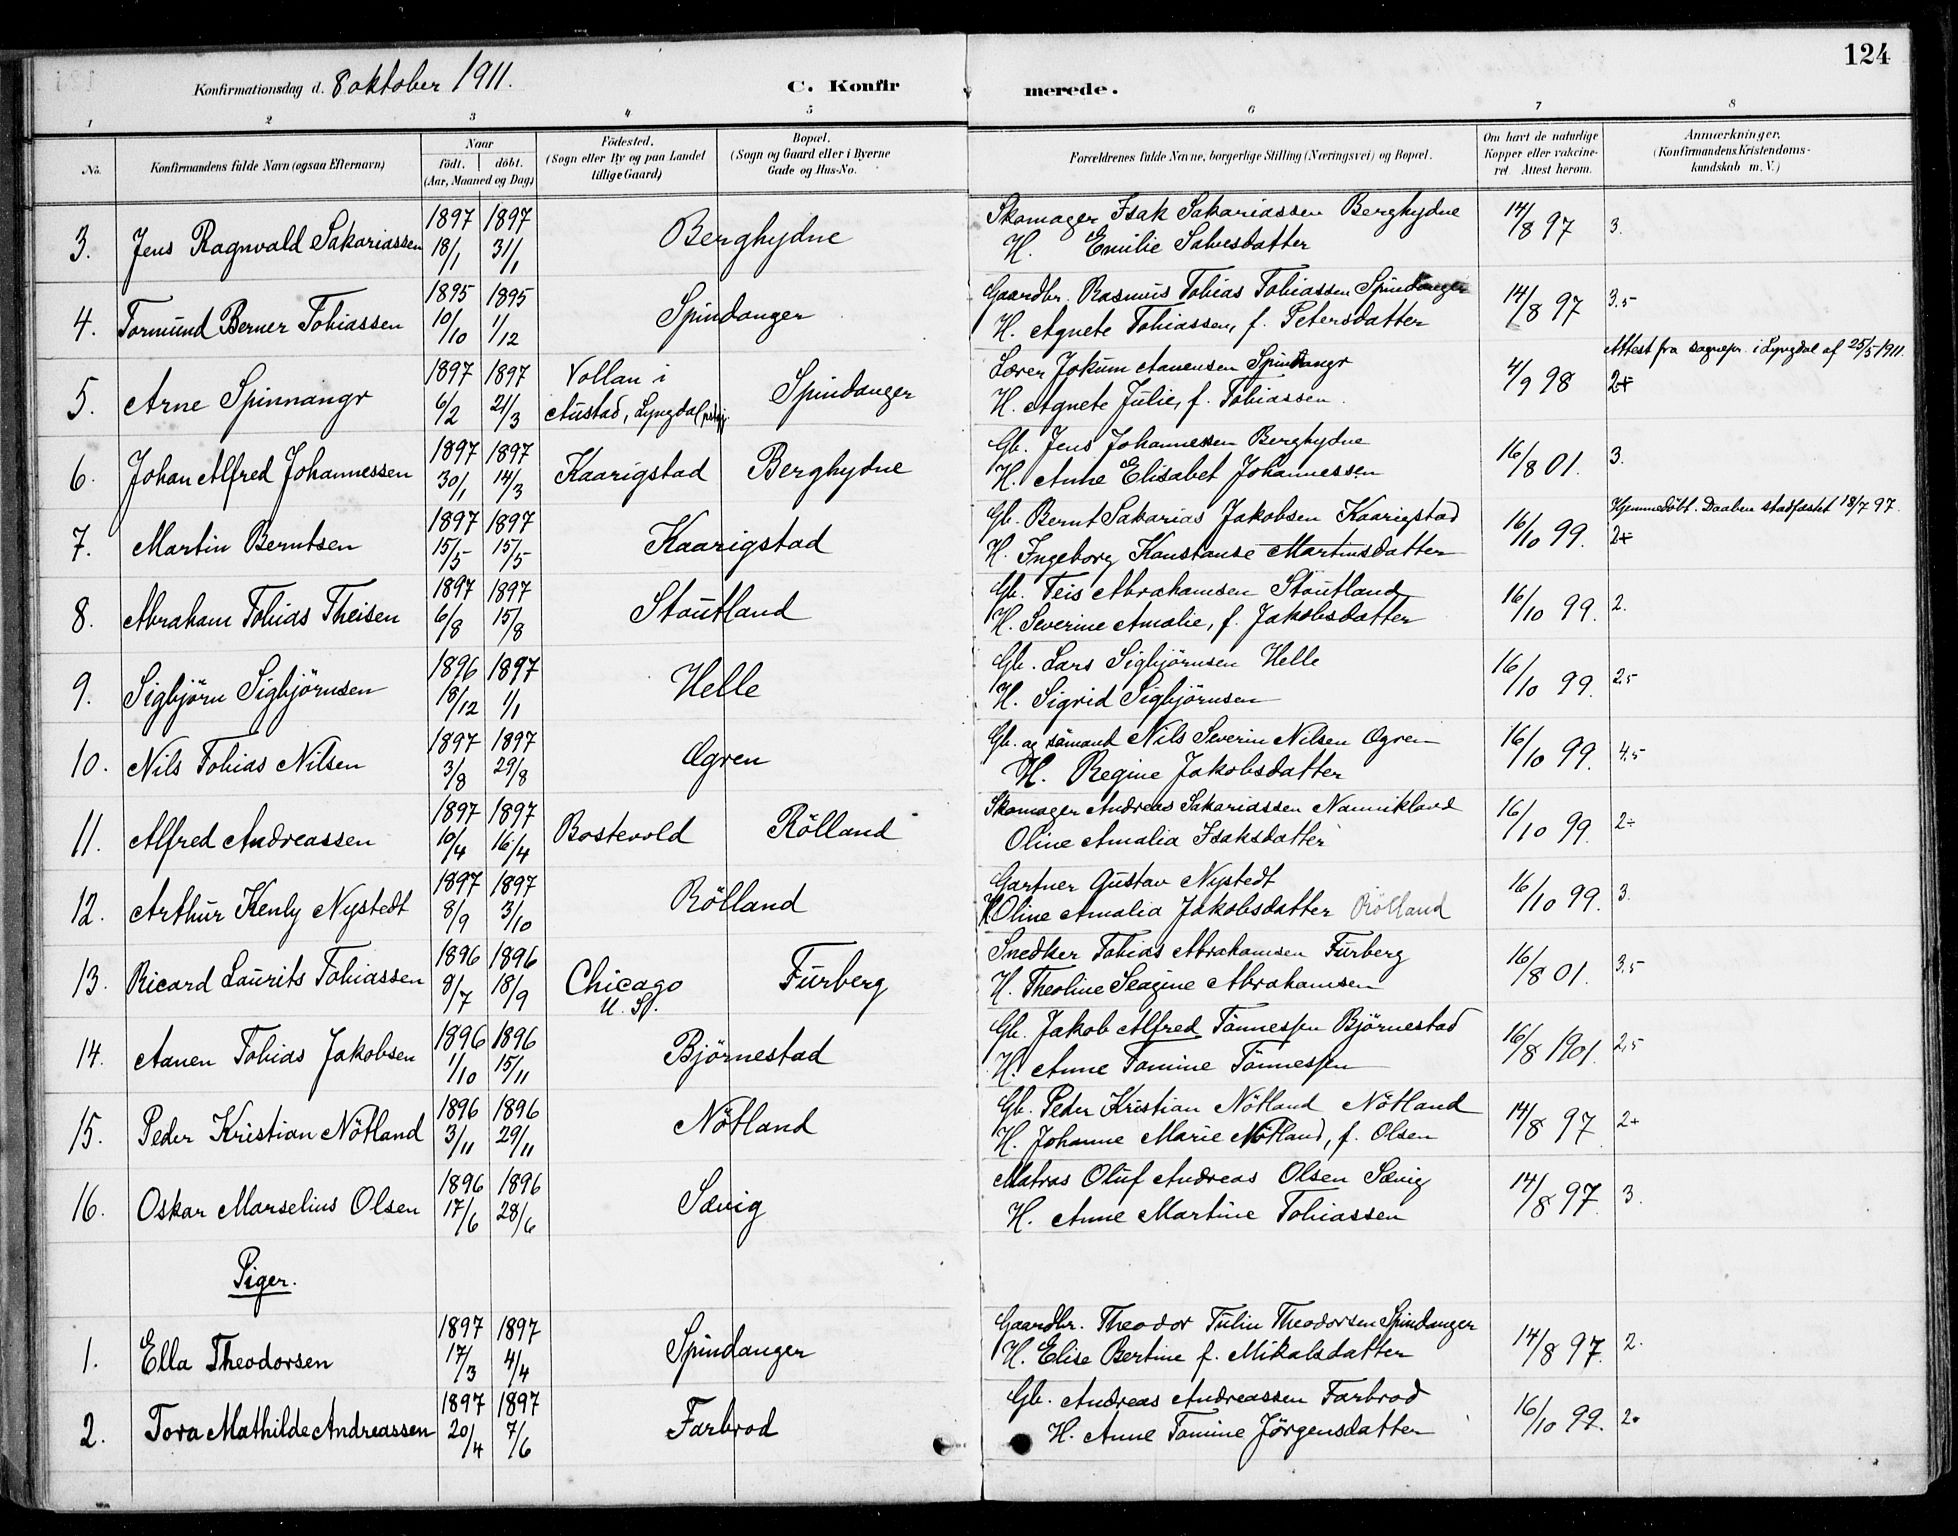 124
Konfirmationsdag d. 8 oktober 1911.
C. Konfirmerede.
1 2 3 4 5 6 7 8
No.
Konfirmandens fulde Navn (ogsaa Efternavn)
Naar
født. døbt.
(Aar, Maaned og Dag)
Fødested.
(Sogn eller By og paa Landet
tillige Gaard)
Bopæl.
(Sogn og Gaard eller i Byerne
Gade og Hus-No.
Forældrenes fulde Navne, borgerlige Stilling (Næringsvei) og Bopæl.
Om havt de naturlige
Kopper eller vakcine-
ret Attest herom.
Anmærkninger.
(Konfirmandens Kristendoms-
kundskab m. V.)
3. Jens Ragnvald Sakariassen 1897 18/1 1897 31/1 Berghydne
Skomager Isak Sakariassen Berghydne
H. Emilie Salvesdatter
14/8 97 3.
4. Tormund Berner Tobiassen 1895 10/10 1895 1/12 Spindanger
Gaardbr. Rasmus Tobias Tobiassen Spindanger
H. Agnete Tobiassen, f. Petersdatter
14/8 97 3.5
5. Arne Spinnangr 1897 6/2 1897 21/3 Vollan i
Austad, Lyngdal Spindanger
Lærer Jokum Aanensen Spindangr
H. Agnete Julie, f. Tobiassen.
4/9 98
Attest fra sognepr. i Lyngdal af 25/5 1911.
2+
6. Johan Alfred Johannessen 1897 30/1 1897 14/3 Kaarigstad Berghydne
Gb. Jens Johannessen Berghydne
H. Anne Elisabet Johannessen
16/8 01. 3.
7. Martin Berntsen 1897 15/5 1897 15/5 Kaarigstad
Gb. Bernt Sakarias Jakobsen Kaarigstad
H. Ingeborg Konstanse Martinsdatter
16/10 99.
Hjemmedöbt. Daaben stadfæstet 18/7 97.
2+
8. Abraham Tobias Theisen 1897 6/8 1897 15/8 Stoutland
Gb. Teis Abrahamsen Stoutland
H. Severine Amalie, f. Jakobsdatter
16/10 99. 2.
9. Sigbjörn Sigbjörnsen 1896 18/12 1897 1/1 Helle
Gb. Lars Sigbjörnsen Helle
H. Sigrid Sigbjörnsen
16/10 99. 2,5
10. Nils Tobias Nilsen 1897 3/8 1897 29/8 Ögren
Gb. og sömand Nils Severin Nilsen Ögren
H. Regine Jakobsdatter
16/10 99. 4,5
11. Alfred Andreassen 1897 10/4 1897 16/4 Bostevold Rölland
Skomager Andreas Sakariassen Nannikland
Oline Amalia Isaksdatter
16/10 99. 2÷
12. Arthur Kenly Nystedt 1897 8/9 1897 3/10 Rölland
Gartner Gustav Nystedt
H. Oline Amalia Jakobsdatter Rölland
16/10 99. 3.
13. Ricard Laurits Tobiassen 1896 9/7 1896 18/9 Chicago
U. St. Furberg
Snedker Tobias Abrahamsen Furberg
H. Theoline Seagine Abrahamsen
16/8 01. 3.5
14. Aanen Tobias Jakobsen 1896 1/10 1896 15/11 Björnestad
Gb. Jakob Alfred Tönnessen Björnestad
H. Anne Tomine Tönnessen
16/8 1901. 2,5
15. Peder Kristian Nötland 1896 3/11 1896 29/11 Nötland
Gb. Peder Kristian Nötland Nötland
H. Johanne Marie Nötland, f. Olsen
14/8 97 2+
16. Oskar Marselius Olsen 1896 17/6 1896 28/6 Sævig
Matros Oluf Andreas Olsen Sævig
H. Anne Martine Tobiassen
14/8 97. 3.
Piger.
1. Ella Theodorsen 1897 17/3 1897 4/4 Spindanger
Gaardbr. Theodor Tulin Theodorsen Spindanger
H. Elise Bertine f. Mikalsdatter
14/8 97. 2.
2. Tora Mathilde Andreassen 1897 20/4 1897 7/6 Farbrod
Gb. Andreas Andreassen Farbrod
H. Anne Tomine Jörgensdatter
16/10 99. 2.